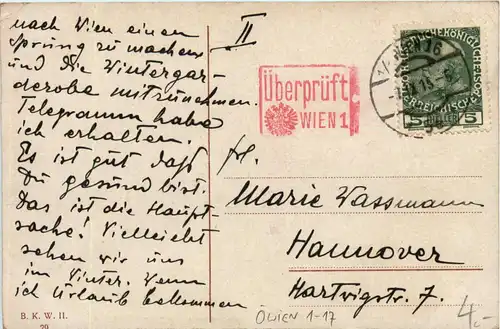 nach Wien einen
Sprung zu machen
und die Wintergar-
derobe mitzunehmen.
Telegramm habe
ich erhalten.
Es ist gut daß
Du gesund bist.
Das ist die Haupt-
sache! Vielleicht
sehen wir uns
im Winter. Wenn
ich Urlaub bekommen
B. K. W. II.
29
II
Überprüft
WIEN 1
WIEN 76
5 5
Frl.
Marie Wassmann
Hannover
Hartwigstr. 7.
ÖWIEN 1-17
4.-